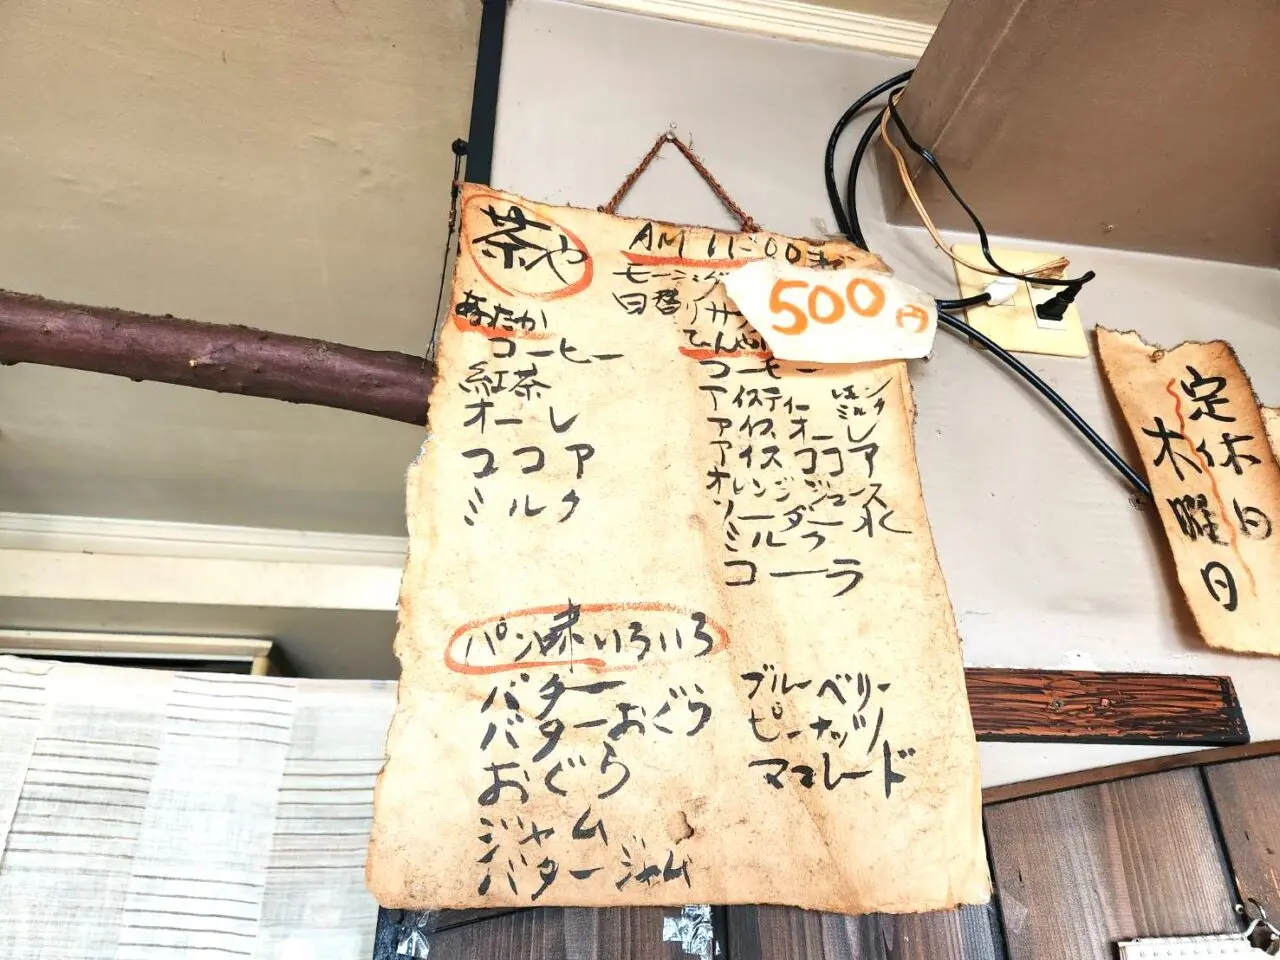 茶や
AM 11:00まで
モーニング
日替りサ
500円
あたたか
コーヒー
紅茶
オーレ
ココア
ミルク
ひんやり
コーヒー
アイスティー レモン ミルク
アイスオーレ
アイスココア
オレンジジュース
ソーダー水
ミルク
コーラ
パン味いろいろ
バター
バターおぐら
おぐら
ジャム
バタージャム
ブルーベリー
ピーナッツ
ママレード
定休日
木曜日